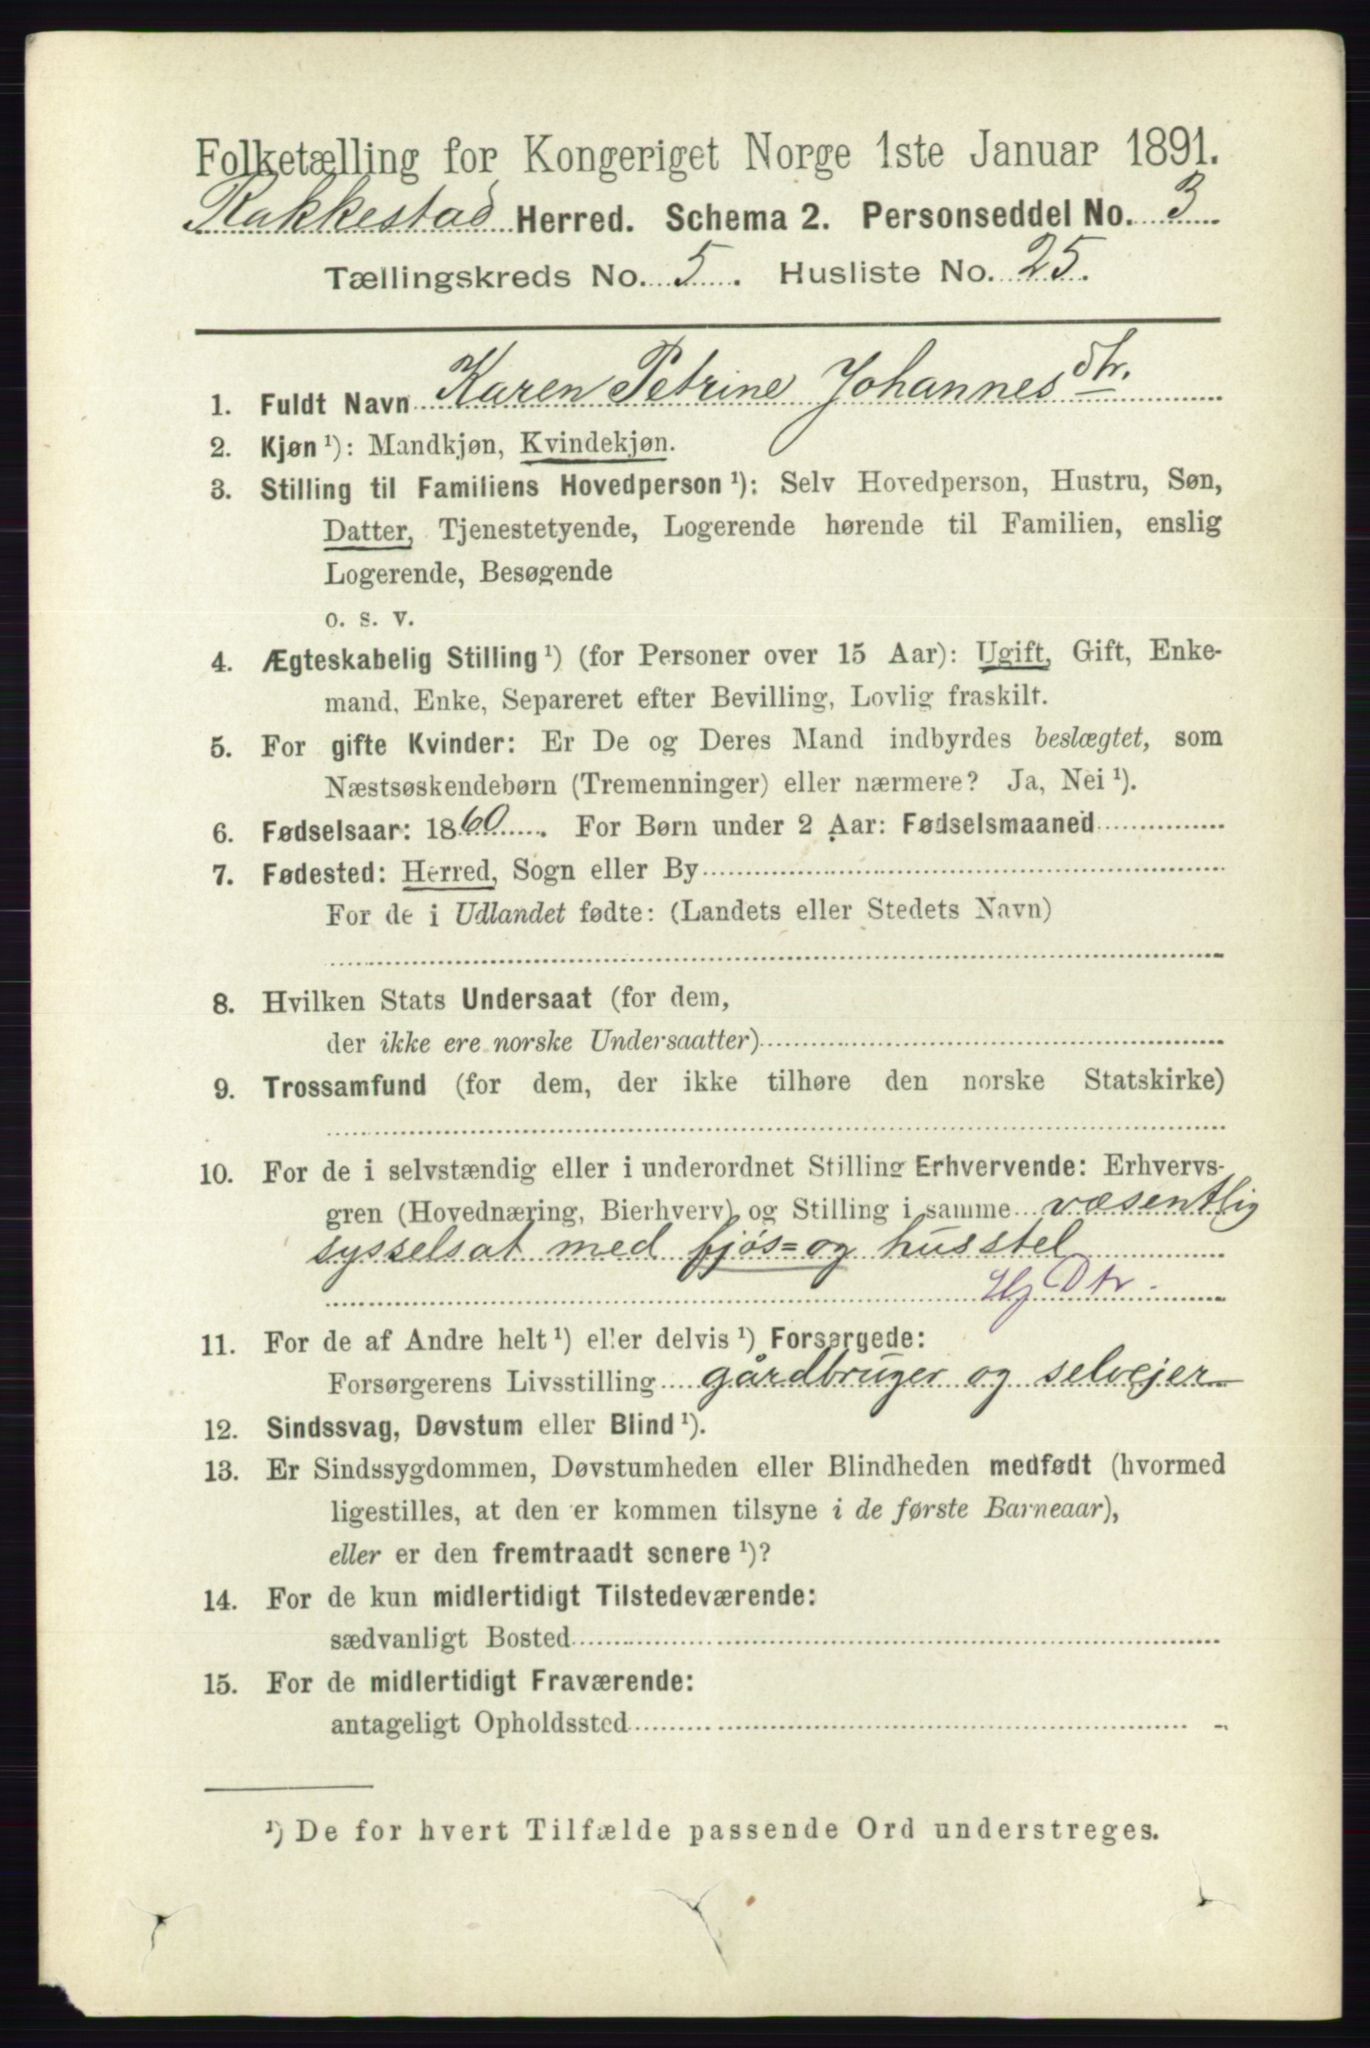 Folketælling for Kongeriget Norge 1ste Januar 1891.
Rakkestad Herred. Schema 2. Personseddel No. 3
Tællingskreds No. 5. Husliste No. 25.
1. Fuldt Navn Karen Petrine Johannesdtr.
2. Kjøn¹): Mandkjøn, Kvindekjøn.
3. Stilling til Familiens Hovedperson¹): Selv Hovedperson, Hustru, Søn,
Datter, Tjenestetyende, Logerende hørende til Familien, enslig
Logerende, Besøgende
o. s. v.
4. Ægteskabelig Stilling¹) (for Personer over 15 Aar): Ugift, Gift, Enke-
mand, Enke, Separeret efter Bevilling, Lovlig fraskilt.
5. For gifte Kvinder: Er De og Deres Mand indbyrdes beslægtet, som
Næstsøskendebørn (Tremenninger) eller nærmere? Ja, Nei¹).
6. Fødselsaar: 1860. For Børn under 2 Aar: Fødselsmaaned
7. Fødested: Herred, Sogn eller By
For de i Udlandet fødte: (Landets eller Stedets Navn)
8. Hvilken Stats Undersaat (for dem,
der ikke ere norske Undersaatter)
9. Trossamfund (for dem, der ikke tilhøre den norske Statskirke)
10. For de i selvstændig eller i underordnet Stilling Erhvervende: Erhvervs-
gren (Hovednæring, Bierhverv) og Stilling i samme væsentlig
sysselsat med fjøs= og husstel
Hj Dtr.
11. For de af Andre helt¹) eller delvis¹) Forsørgede:
Forsørgerens Livsstilling gårdbruger og selvejer
12. Sindssvag, Døvstum eller Blind¹).
13. Er Sindssygdommen, Døvstumheden eller Blindheden medfødt (hvormed
ligestilles, at den er kommen tilsyne i de første Barneaar),
eller er den fremtraadt senere¹)?
14. For de kun midlertidigt Tilstedeværende:
sædvanligt Bosted
15. For de midlertidigt Fraværende:
antageligt Opholdssted
¹) De for hvert Tilfælde passende Ord understreges.